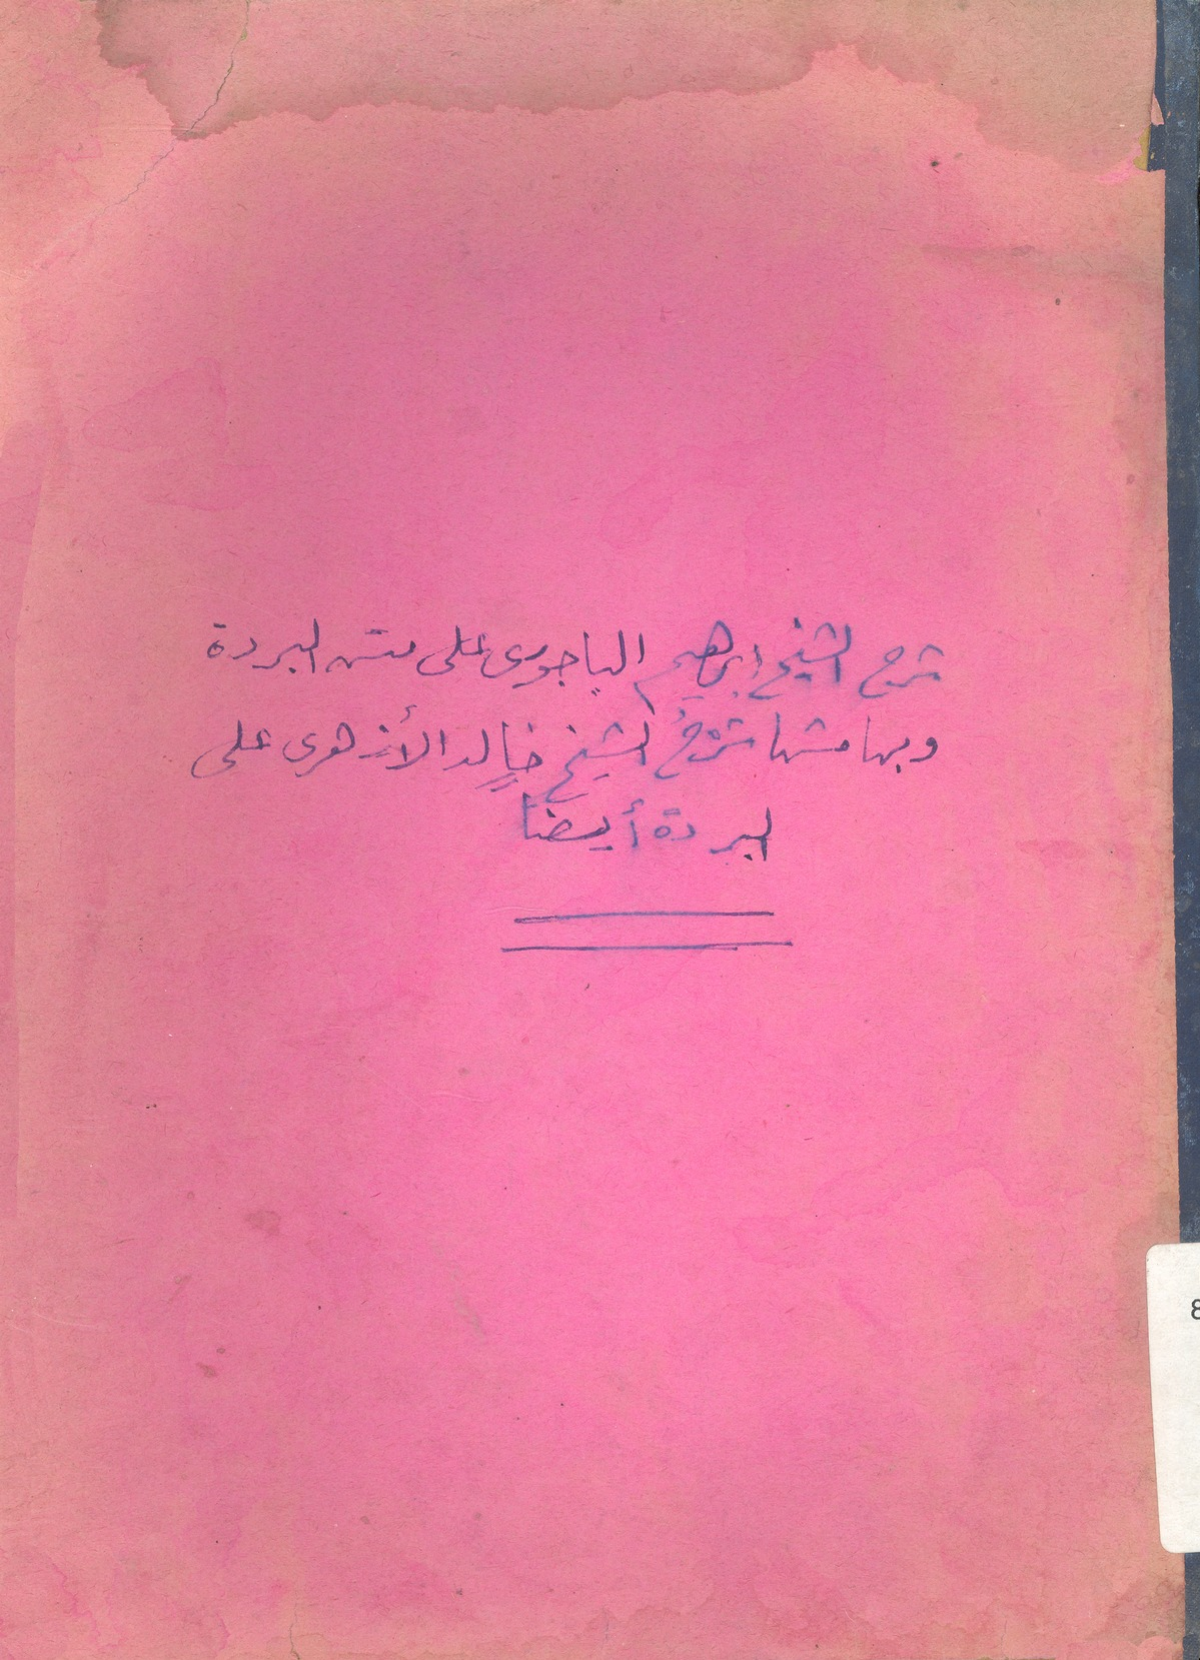 شرح الشيخ ابراهيم الباجورى على متن البردة
وبهامشها شرحُ الشيخ خالد الأزهرى على
البردة أيضا
8